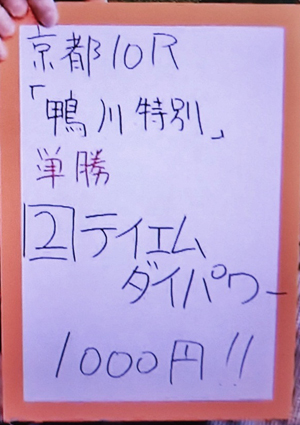 京都10R
「鴨川特別」
単勝
2 テイエム
ダイパワー
1000円!!